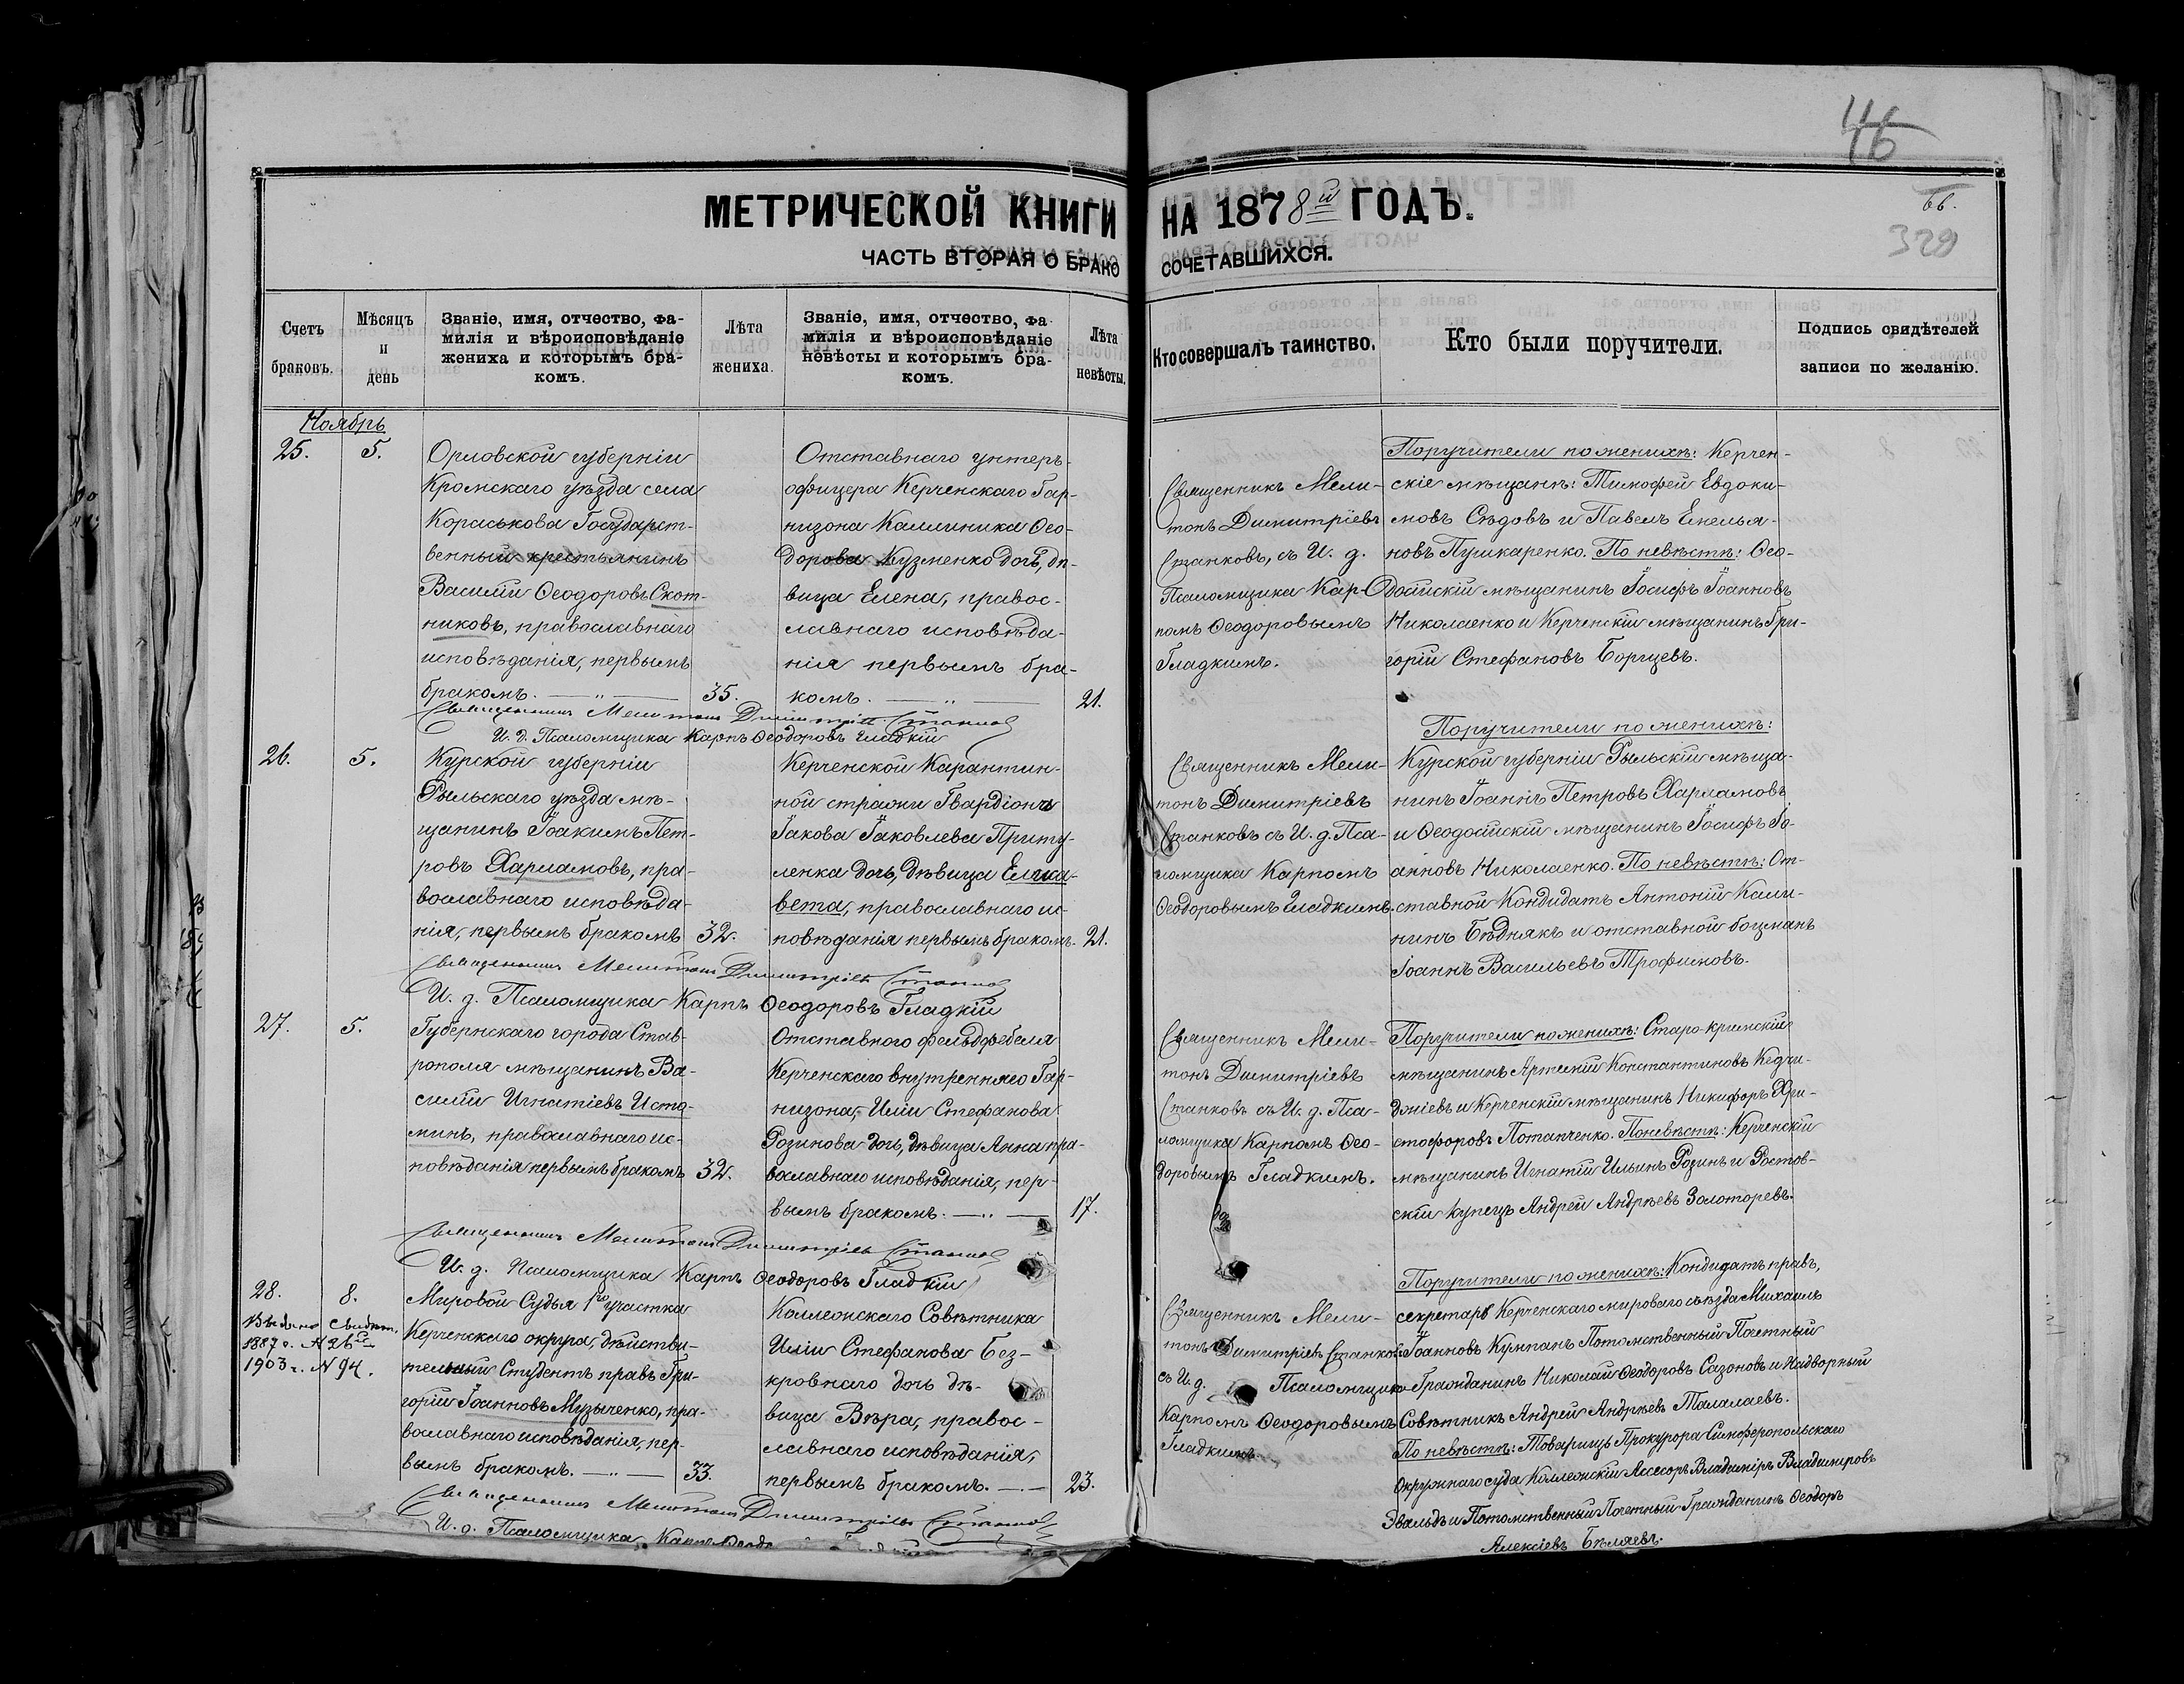 46
66.
329
МЕТРИЧЕСКОЙ КНИГИ НА 1878й ГОДЪ.
ЧАСТЬ ВТОРАЯ О БРАКОСОЧЕТАВШИХСЯ.
Счетъ браковъ.
Мѣсяцъ и день
Званіе, имя, отчество, фа-
милія и вѣроисповѣданіе
жениха и которымъ бра-
комъ.
Лѣта жениха.
Званіе, имя, отчество, фа-
милія и вѣроисповѣданіе
невѣсты и которымъ бра-
комъ.
Лѣта невѣсты.
Кто совершалъ таинство.
Кто были поручители.
Подпись свидѣтелей
записи по желанію.
Ноябрь
25.
5.
Орловской губерніи
Кромскаго уѣзда села
Кораськова Государст-
венный крестьянинъ
Василій Ѳеодоровъ Скот-
никовъ, православнаго
исповѣданія, первымъ
бракомъ. — „ —
35.
Отставнаго унтеръ-
офицера Керченскаго Гар-
низона Каллиника Ѳео-
дорова Кузменко дочь, дѣ-
вица Елена, правос-
лавнаго исповѣда-
нія первымъ бра-
комъ. — „ —
21.
Священникъ Мели-
тонъ Димитріевъ
Станковъ, съ И. д.
Псаломщика Кар-
помъ Ѳеодоровымъ
Гладкимъ.
Поручители по женихѣ: Керчен-
скіе мѣщане: Тимофей Евдоки-
мовъ Сѣдовъ и Павелъ Емелья-
новъ Пушкаренко. По невѣстѣ: Ѳео-
досійскій мѣщанинъ Іосифъ Іоанновъ
Николаенко и Керченскій мѣщанинъ Гри-
горій Стефановъ Борщевъ.
Священникъ Мелитонъ Димитріевъ Станковъ
И. д. Псаломщика Карпъ Ѳеодоровъ Гладкій
26.
5.
Курской губерніи
Рыльскаго уѣзда мѣ-
щанинъ Іоакимъ Пет-
ровъ Харламовъ, пра-
вославнаго исповѣда-
нія, первымъ бракомъ
32.
Керченской Карантин-
ной стражи Гвардіона
Іакова Іаковлева Приту-
ленка дочь, дѣвица Елиса-
вета, православнаго ис-
повѣданія первымъ бракомъ.
21.
Священникъ Мели-
тонъ Димитріевъ
Станковъ съ И. д. Пса-
ломщика Карпомъ
Ѳеодоровымъ Гладкимъ.
Поручители по женихѣ:
Курской губерніи Рыльскій мѣща-
нинъ Іоаннъ Петровъ Харламовъ
и Ѳеодосійскій мѣщанинъ Іосифъ Іо-
анновъ Николаенко. По невѣстѣ: От-
ставной Кондидатъ Антоній Кали-
нинъ Бѣднякъ и отставной боцманъ
Іоаннъ Васильевъ Трофимовъ.
Священникъ Мелитонъ Димитріевъ Станковъ
И. д. Псаломщика Карпъ Ѳеодоровъ Гладкій
27.
5.
Губернскаго города Став-
рополя мѣщанинъ Ва-
силій Игнатіевъ Исто-
минъ, православнаго ис-
повѣданія первымъ бракомъ
32.
Отставного фельдфебеля
Керченскаго внутренняго Гар-
низона, Иліи Стефанова
Розинова дочь, дѣвица Анна пра-
вославнаго исповѣданія, пер-
вымъ бракомъ. — „ —
17.
Священникъ Мели-
тонъ Димитріевъ
Станковъ съ И. д. Пса-
ломщика Карпомъ Ѳео-
доровымъ Гладкимъ.
Поручители по женихѣ: Старо-крымскій
мѣщанинъ Артемій Константиновъ Кедчи-
джіевъ и Керченскій мѣщанинъ Никифоръ Хри-
стофоровъ Потапченко. По невѣстѣ: Керченскій
мѣщанинъ Игнатій Ильинъ Розинъ и Ростов-
скій купецъ Андрей Андрѣевъ Золоторевъ.
Священникъ Мелитонъ Димитріевъ Станковъ
И. д. Псаломщика Карпъ Ѳеодоровъ Гладкій
28.
8.
Выдано Свидѣт.
1887 г. № 26й
1903 г. № 94.
Мировой Судья 1го участка
Керченскаго округа, дѣйстви-
тельный Студентъ правъ Гри-
горій Іоанновъ Музыченко, пра-
вославнаго исповѣданія, пер-
вымъ бракомъ. — „ —
33.
Коллежскаго Совѣтника
Иліи Стефанова Без-
кровнаго дочь дѣ-
вица Вѣра, правос-
лавнаго исповѣданія,
первымъ бракомъ. —
23.
Священникъ Мели-
тонъ Димитріевъ Станковъ
съ И. д. Псаломщика
Карпомъ Ѳеодоровымъ
Гладкимъ.
Поручители по женихѣ: Кондидатъ правъ,
секретарь Керченскаго мироваго съѣзда Михаилъ
Іоанновъ Кумпанъ Потомственный Почетный
Гражданинъ Николай Ѳеодоровъ Сазоновъ и Надворный
Совѣтникъ Андрей Андрѣевъ Талалаевъ.
По невѣстѣ: Товарищъ Прокурора Симферопольскаго
Окружнаго суда Коллежскій Ассесоръ Владиміръ Владиміровъ
Эвальдъ и Потомственный Почетный Гражданинъ Ѳеодоръ
Алексіевъ Бѣляевъ.
Священникъ Мелитонъ Димитріевъ Станковъ
И. д. Псаломщика Карпъ